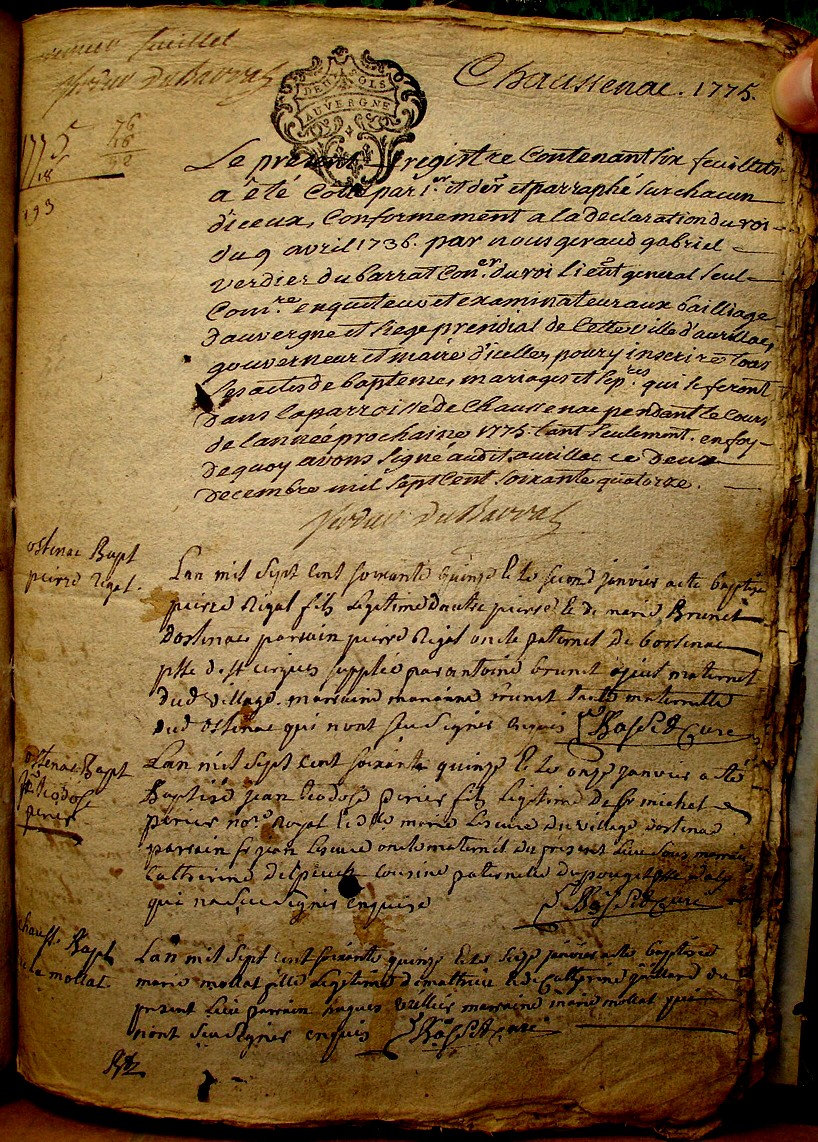 premier feuillet
Verdier Du Barrat
Chaussenac. 1775.
DEUX SOLS
AUVERGNE
1775
18
193
76
16
92
Le présent registre Contenant six feuillets
a êté Coté par 1.er et der et parraphé sur chacun
d'iceux, Conformement a la declaration du roi
du 9 avril 1736. par nous geraud gabriel
verdier du barrat Con.er du roi Lieut general seul
Com.re enqueteur et examinateur aux bailliage
d'auvergne et siege presidial de Cette ville d'aurillac,
gouverneur et maire d'icelle, pour y inscrire tous
les actes de baptemes, mariages et sep.res qui se feront
dans la parroisse de Chaussenac pendant le Cours
de l'année prochaine 1775. tant seulement. en foy
de quoy avons signé audit aurillac ce deux
decembre mil sept Cent soixante quatorze.
Verdier Du Barrat
ostenac Bapt
pierre Rigal.
Lan mil sept cent soixante quinze et le second janvier a ete baptisé
pierre Rigal fils legitime dautre pierre et de marie Brunet
dostenac parrain pierre Rigal oncle paternel de
ptte d. st cirgues supplée par antoine brunet ayeul maternel
dud village. marraine marianne brunet tante maternelle
dud ostenac qui nont seu signer enquis Bassid Curé
ostenac Bapt
jn teodose
perier
Lan mil sept cent soixante quinze et le onze janvier a eté
Baptisé jean teodose perier fils legitime de sr michel
perier nore Royal et dlle marie Lescure du village dostenac
parrain sr jean Lescure oncle maternel du present lieu sous marraine
Catherine delpeuch cousine paternelle du
qui na seu signer enquise Bassid Curé
chauss. Bapt
mollat.
Lan mil sept cent soixante quinze et le seize janvier a ete baptisée
marie mollat fille legitime d mathieu et de Catherine gaillard du
present Lieu parrain hugues marraine marie mollat qui
nont seu signer enquis Bassid Curé